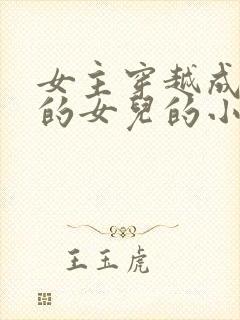 女主穿越成
的女兒的小
王玉虎